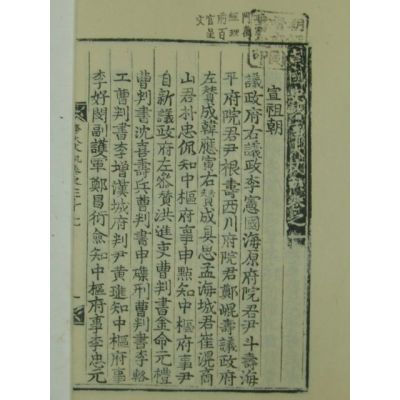 宣祖朝
議政府右議政李憲國海原府院君尹斗壽海
平府院君尹根壽西川府院君鄭崐壽議政府
左贊成韓應寅右贊成具思孟海城君崔滉商
山君朴忠侃知中樞府事申點知中樞府事尹
自新議政府左參贊洪進吏曹判書金命元禮
曹判書沈喜壽兵曹判書申磼刑曹判書李輅
工曹判書李增漢城府判尹黃璡知中樞府事
李好閔副護軍鄭昌衍僉知中樞府事李忠元